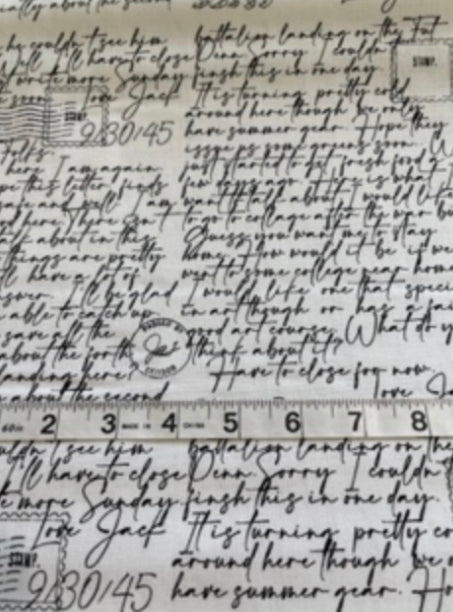 ially about the second
he couldn't see him
Well I'll have to close
write more Sunday
Love Jack
STAMP.
9/30/45
Folks.
here I am again
pe this letter finds
safe and well. I am
and here. There isn't
talk about in this
things are pretty
ll have a lot of
nswer. I'll be glad
able to catch up
save all the
about the forth
landing here?
n about the second
battalion landing on the Fut
Penn. Sorry I couldn't
finsh this in one day
STAMP.
It is turning pretty cold
around here though we only
have summer gear. Hope they
issue us some greens soon. W
just started to get fresh food a
few days ago.
want to talk about I would like
to go to collage after the war bu
Guess you want me to stay
home. How would it be if we
went to some college near home
I would like one that speci
in art though or has a fa
good art course. What do y
think about it?
Have to close for now.
Love Ja
60in 2 3 MADE IN 4 5 6 7 8
uldn't see him
battalion landing on the
I'll have to close
Penn. Sorry I couldn't
te more Sunday
finsh this in one day.
Love Jack
It is turning pretty co
STAMP.
around here though we o
9/30/45
have summer gear. Ho